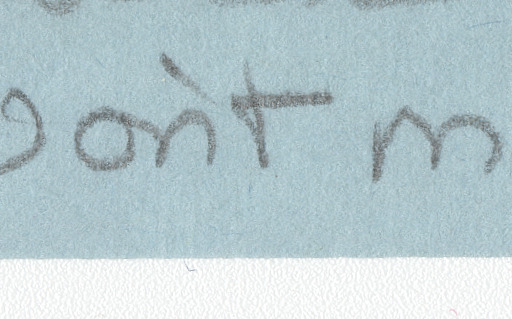 Don't m